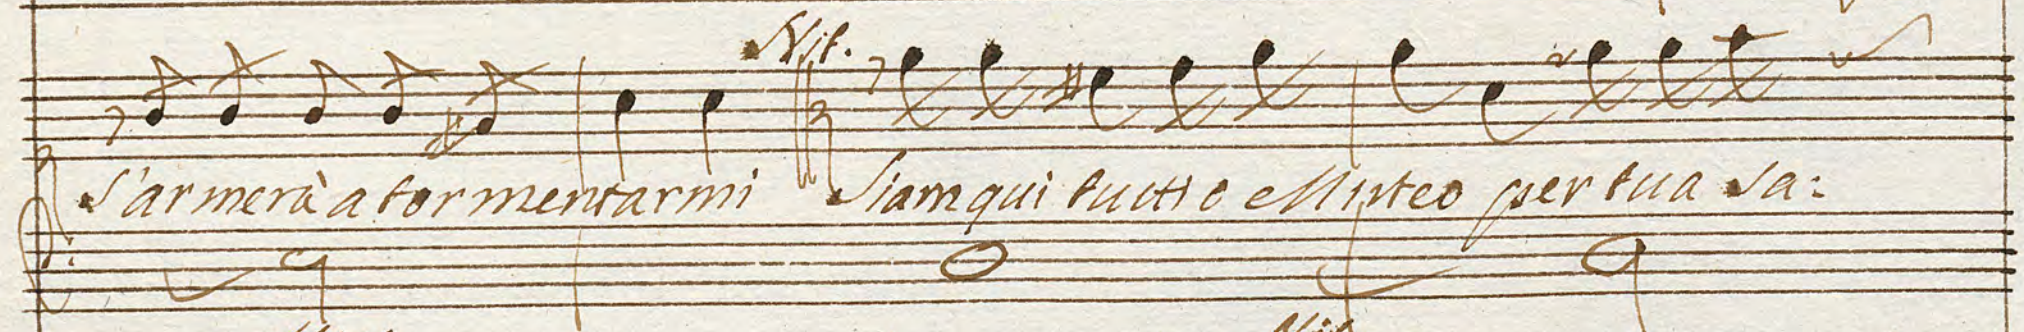 Nit.
S'armerà a tormentarmi Siam qui tutti o Minteo per tua sa:
Nit